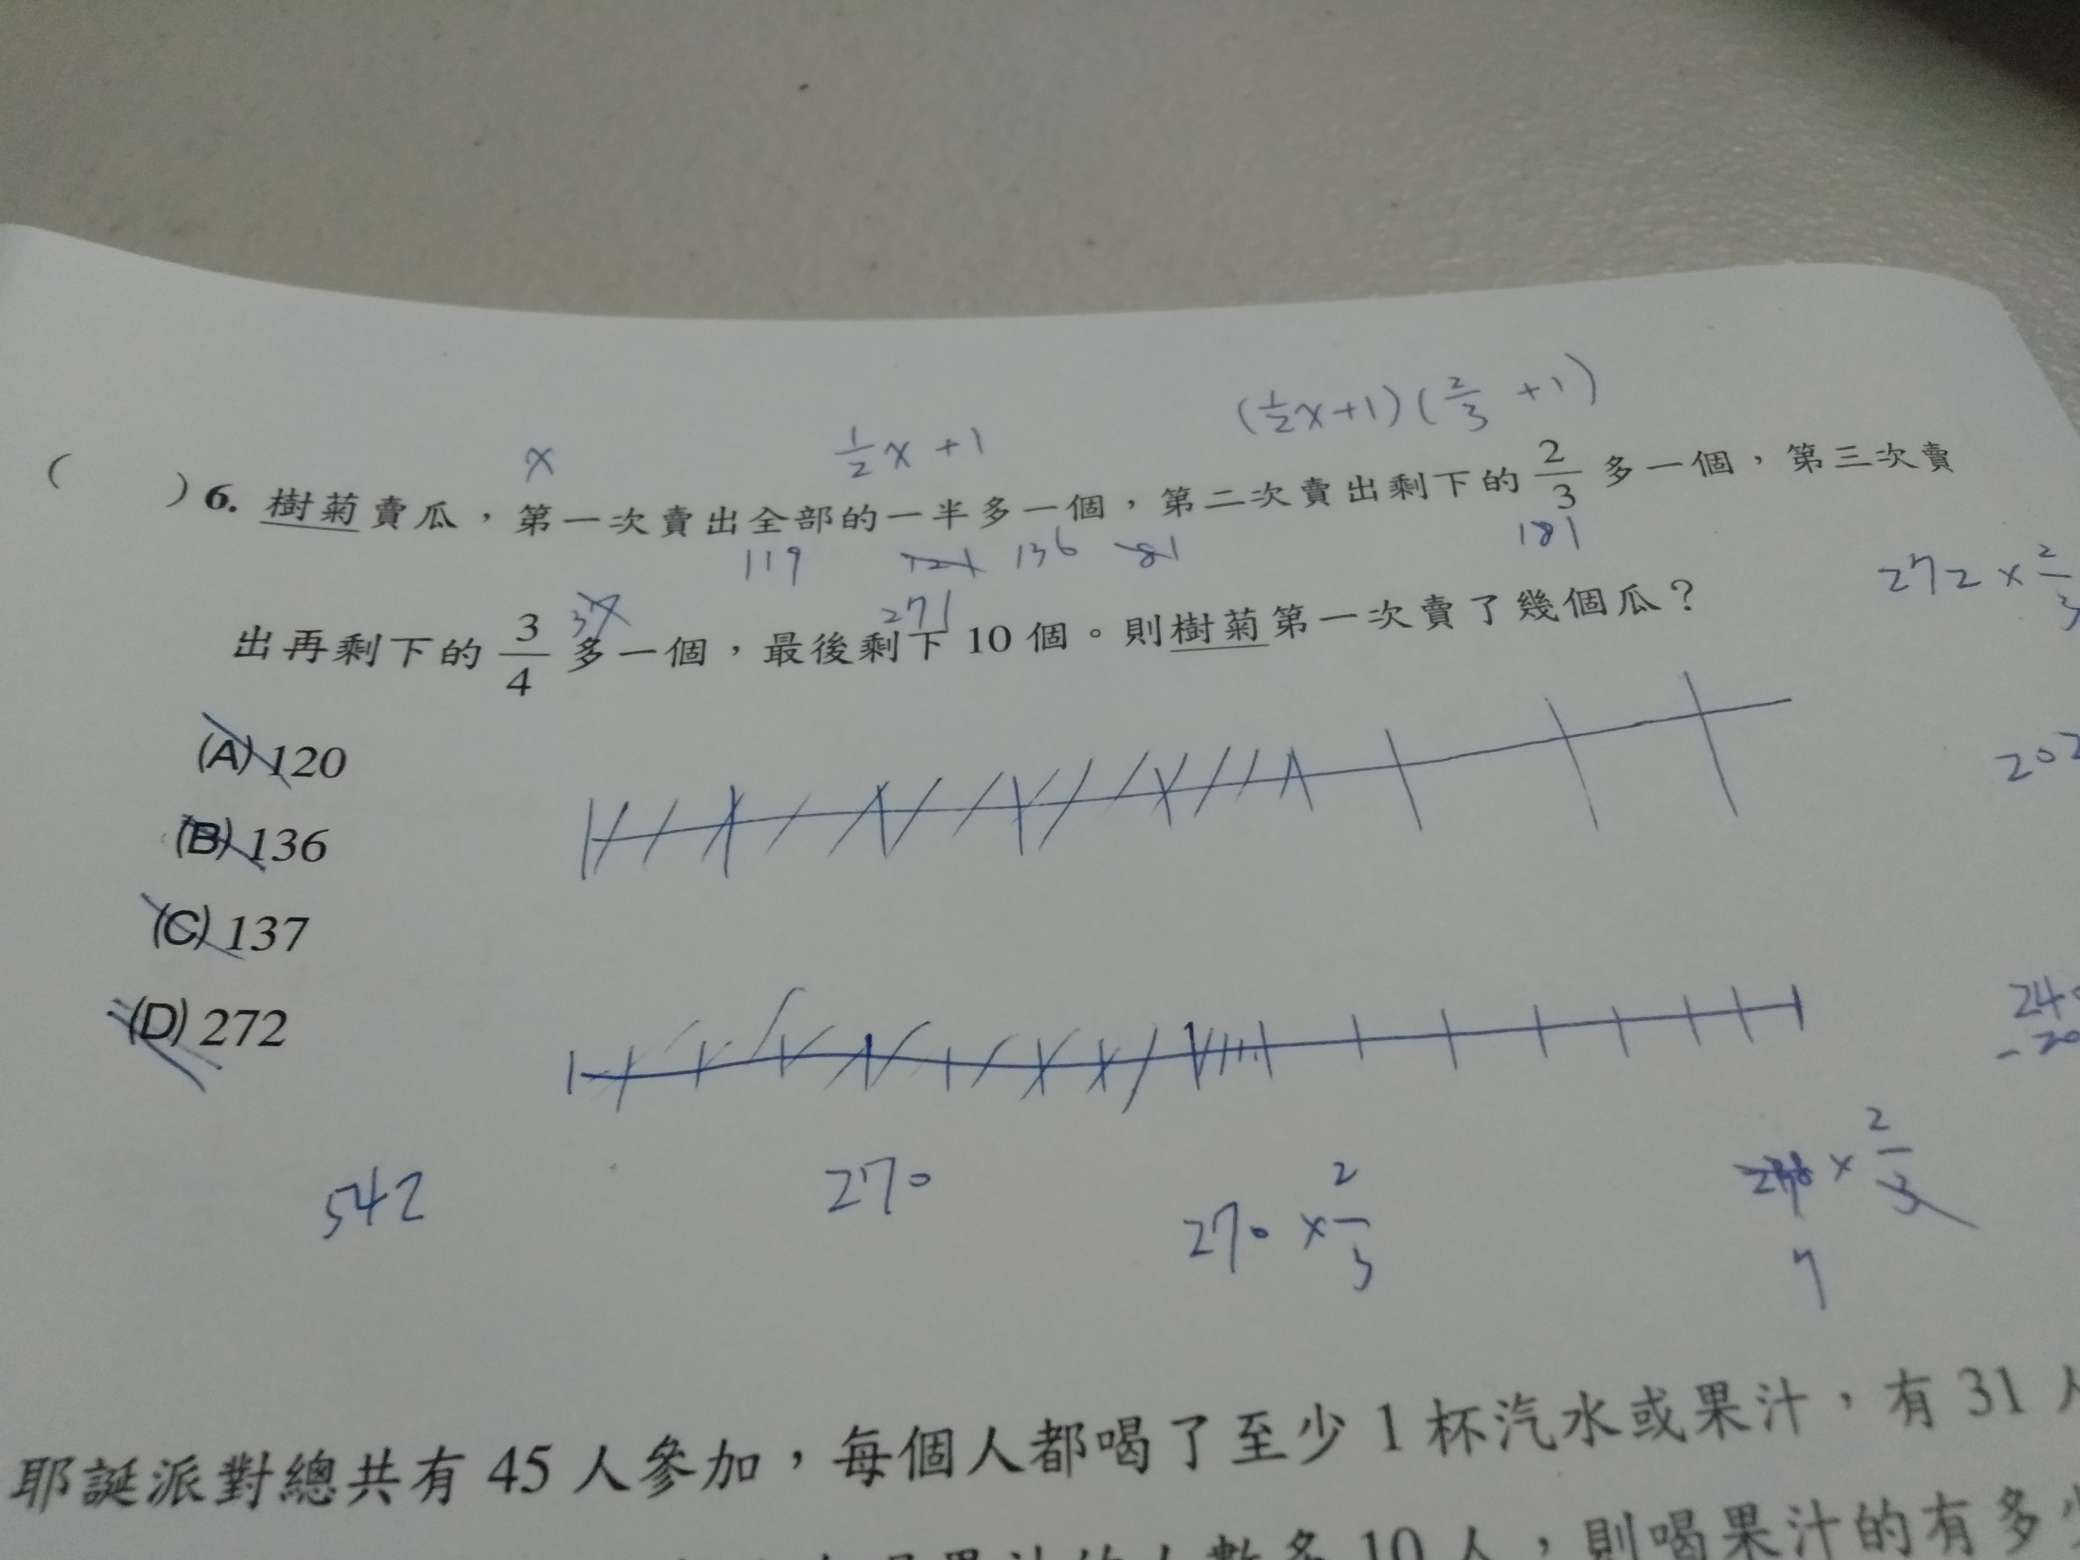 x
1/2 x + 1
(1/2 x + 1)(2/3 + 1)
( )6. 樹菊賣瓜，第一次賣出全部的一半多一個，第二次賣出剩下的 2/3 多一個，第三次賣
119 121 136 81 181
272 × 2/3
37 271
出再剩下的 3/4 多一個，最後剩下 10 個。則樹菊第一次賣了幾個瓜？
(A) 120
(B) 136
(C) 137
(D) 272
202
542
270
270 × 2/3
× 2/3
耶誕派對總共有 45 人參加，每個人都喝了至少 1 杯汽水或果汁，有 31 人
人數多 10 人，則喝果汁的有多少